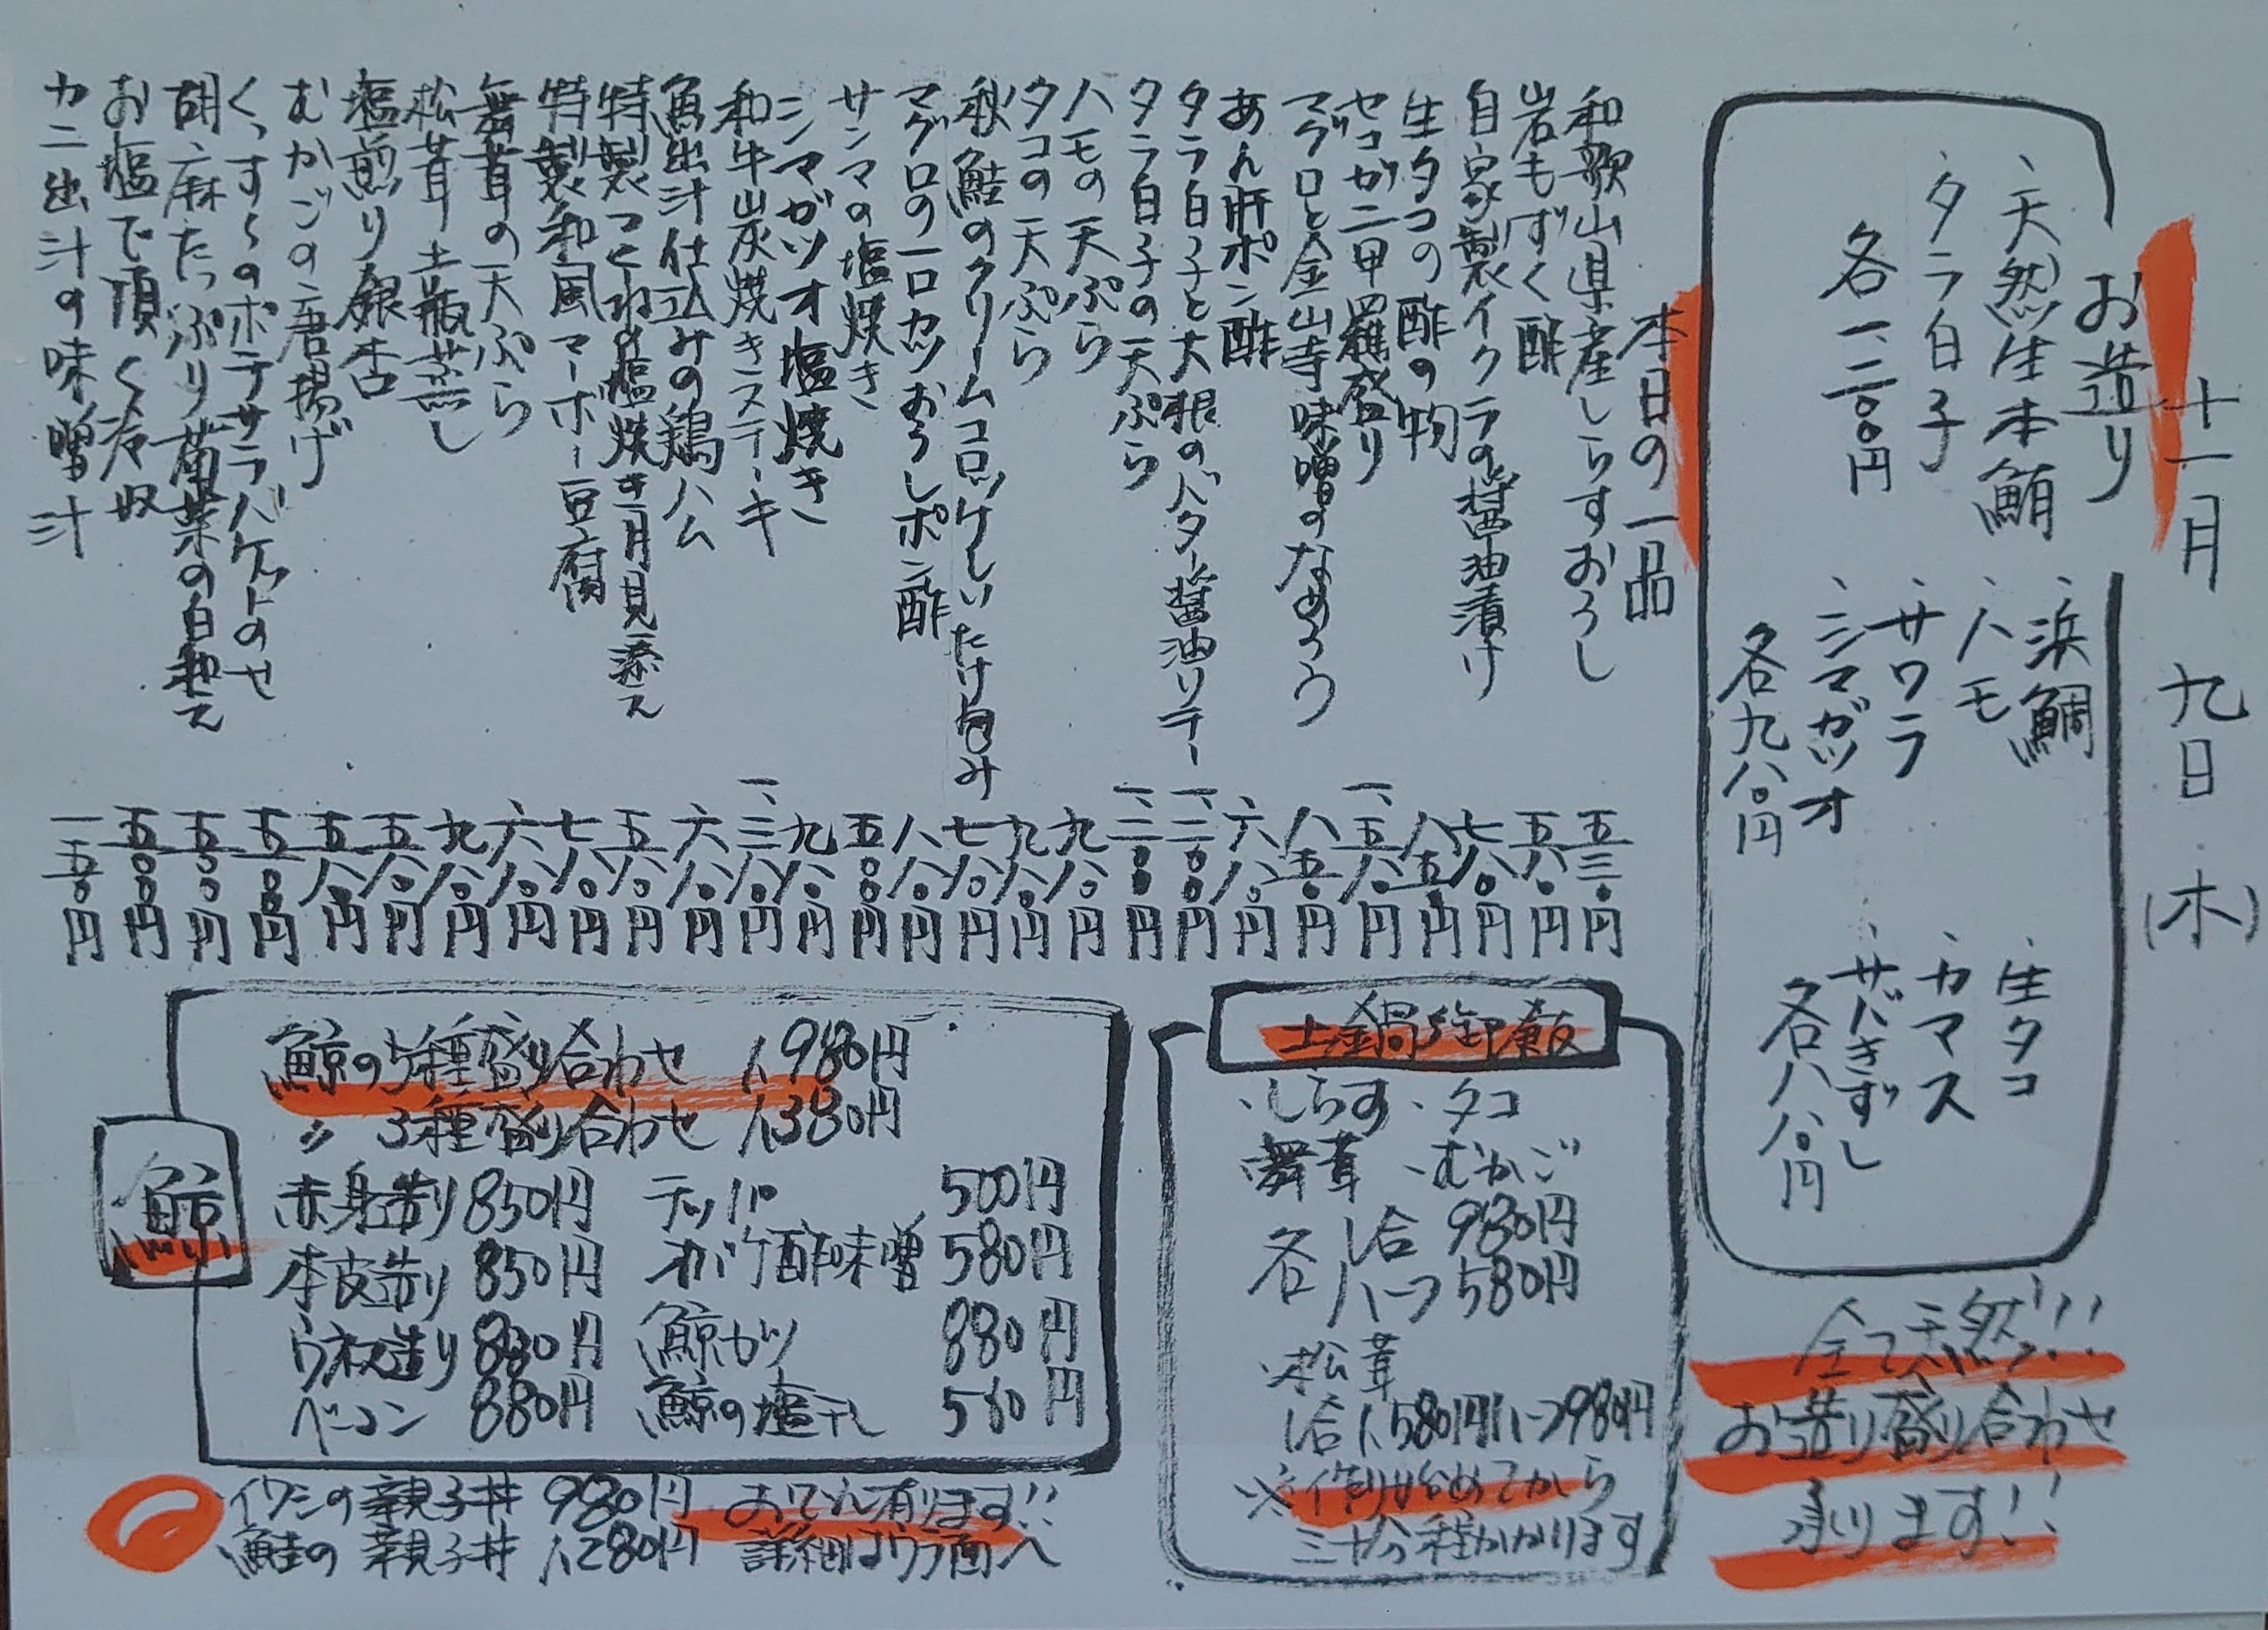 十一月九日(木)
お造り
、天然生本鮪
、タラ白子
各一、二〇〇円
、浜鯛
、ハモ
、サワラ
、シマガツオ
各九八〇円
、生タコ
、カマス
、サバきずし
各八八〇円
全て天然!!!
お造り盛り合わせ
承ります!!
本日の一品
和歌山県産しらすおろし 五三〇円
岩もずく酢 五八〇円
自家製イクラの醤油漬け 七八〇円
生タコの酢の物 八五〇円
セコガニ甲羅盛り 一、五八〇円
マグロと金山寺味噌のなめろう 八五〇円
あん肝ポン酢 六八〇円
タラ白子と大根のバター醤油ソテー 一、二〇〇円
タラ白子の天ぷら 一、二〇〇円
ハモの天ぷら 九八〇円
タコの天ぷら 九八〇円
秋鮭のクリームコロッケしいたけ包み 七八〇円
マグロの一口カツおろしポン酢 八八〇円
サンマの塩焼き 五〇〇円
シマガツオ塩焼き 九八〇円
和牛炭焼きステーキ 一、三八〇円
魚出汁仕込みの鶏ハム 六八〇円
特製つくねの塩焼き月見添え 五八〇円
特製和風マーボー豆腐 七八〇円
舞茸の天ぷら 六八〇円
松茸土瓶蒸し 九八〇円
塩煎り銀杏 五八〇円
むかごの唐揚げ 五八〇円
くっすぅのポテサラバケットのせ 五五〇円
胡麻たっぷり菊菜の白和え 五五〇円
お塩で頂く冷奴 五〇〇円
カニ出汁の味噌汁 一五〇円
土鍋御飯
、しらす 、タコ
、舞茸 、むかご
各 1合 980円
ハーフ 580円
、松茸
1合1,580円ハーフ980円
※作り始めてから
三十分程かかります
鯨
鯨の5種盛り合わせ 1,980円
〃 3種盛り合わせ 1,380円
赤身造り 850円 テッパ 500円
本皮造り 850円 オバケ酢味噌 580円
ウネ造り 880円 鯨カツ 880円
ベーコン 880円 鯨の塩干し 580円
イワシの親子丼 980円
鮭の親子丼 1,280円
おでん有ります!!
詳細はウラ面へ